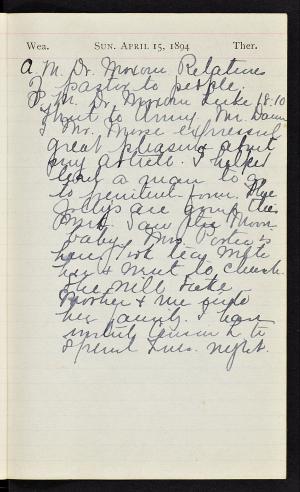 Wea. SUN. APRIL 15, 1894 Ther.
A.M. Dr. Moxom Relations
of pastor to people.
P.M. Dr. Moxom Luke 18:10
I went to Army. Mr.
Mr. expressed
great pleasure about
my article. I helped
lead a man to go
to penitent form. The
are going this
Saw the Moon
baby. Mrs.
took tea with
her & went to church.
She will take
Mother & me into
her family. I have
invited to
spend Tues. night.